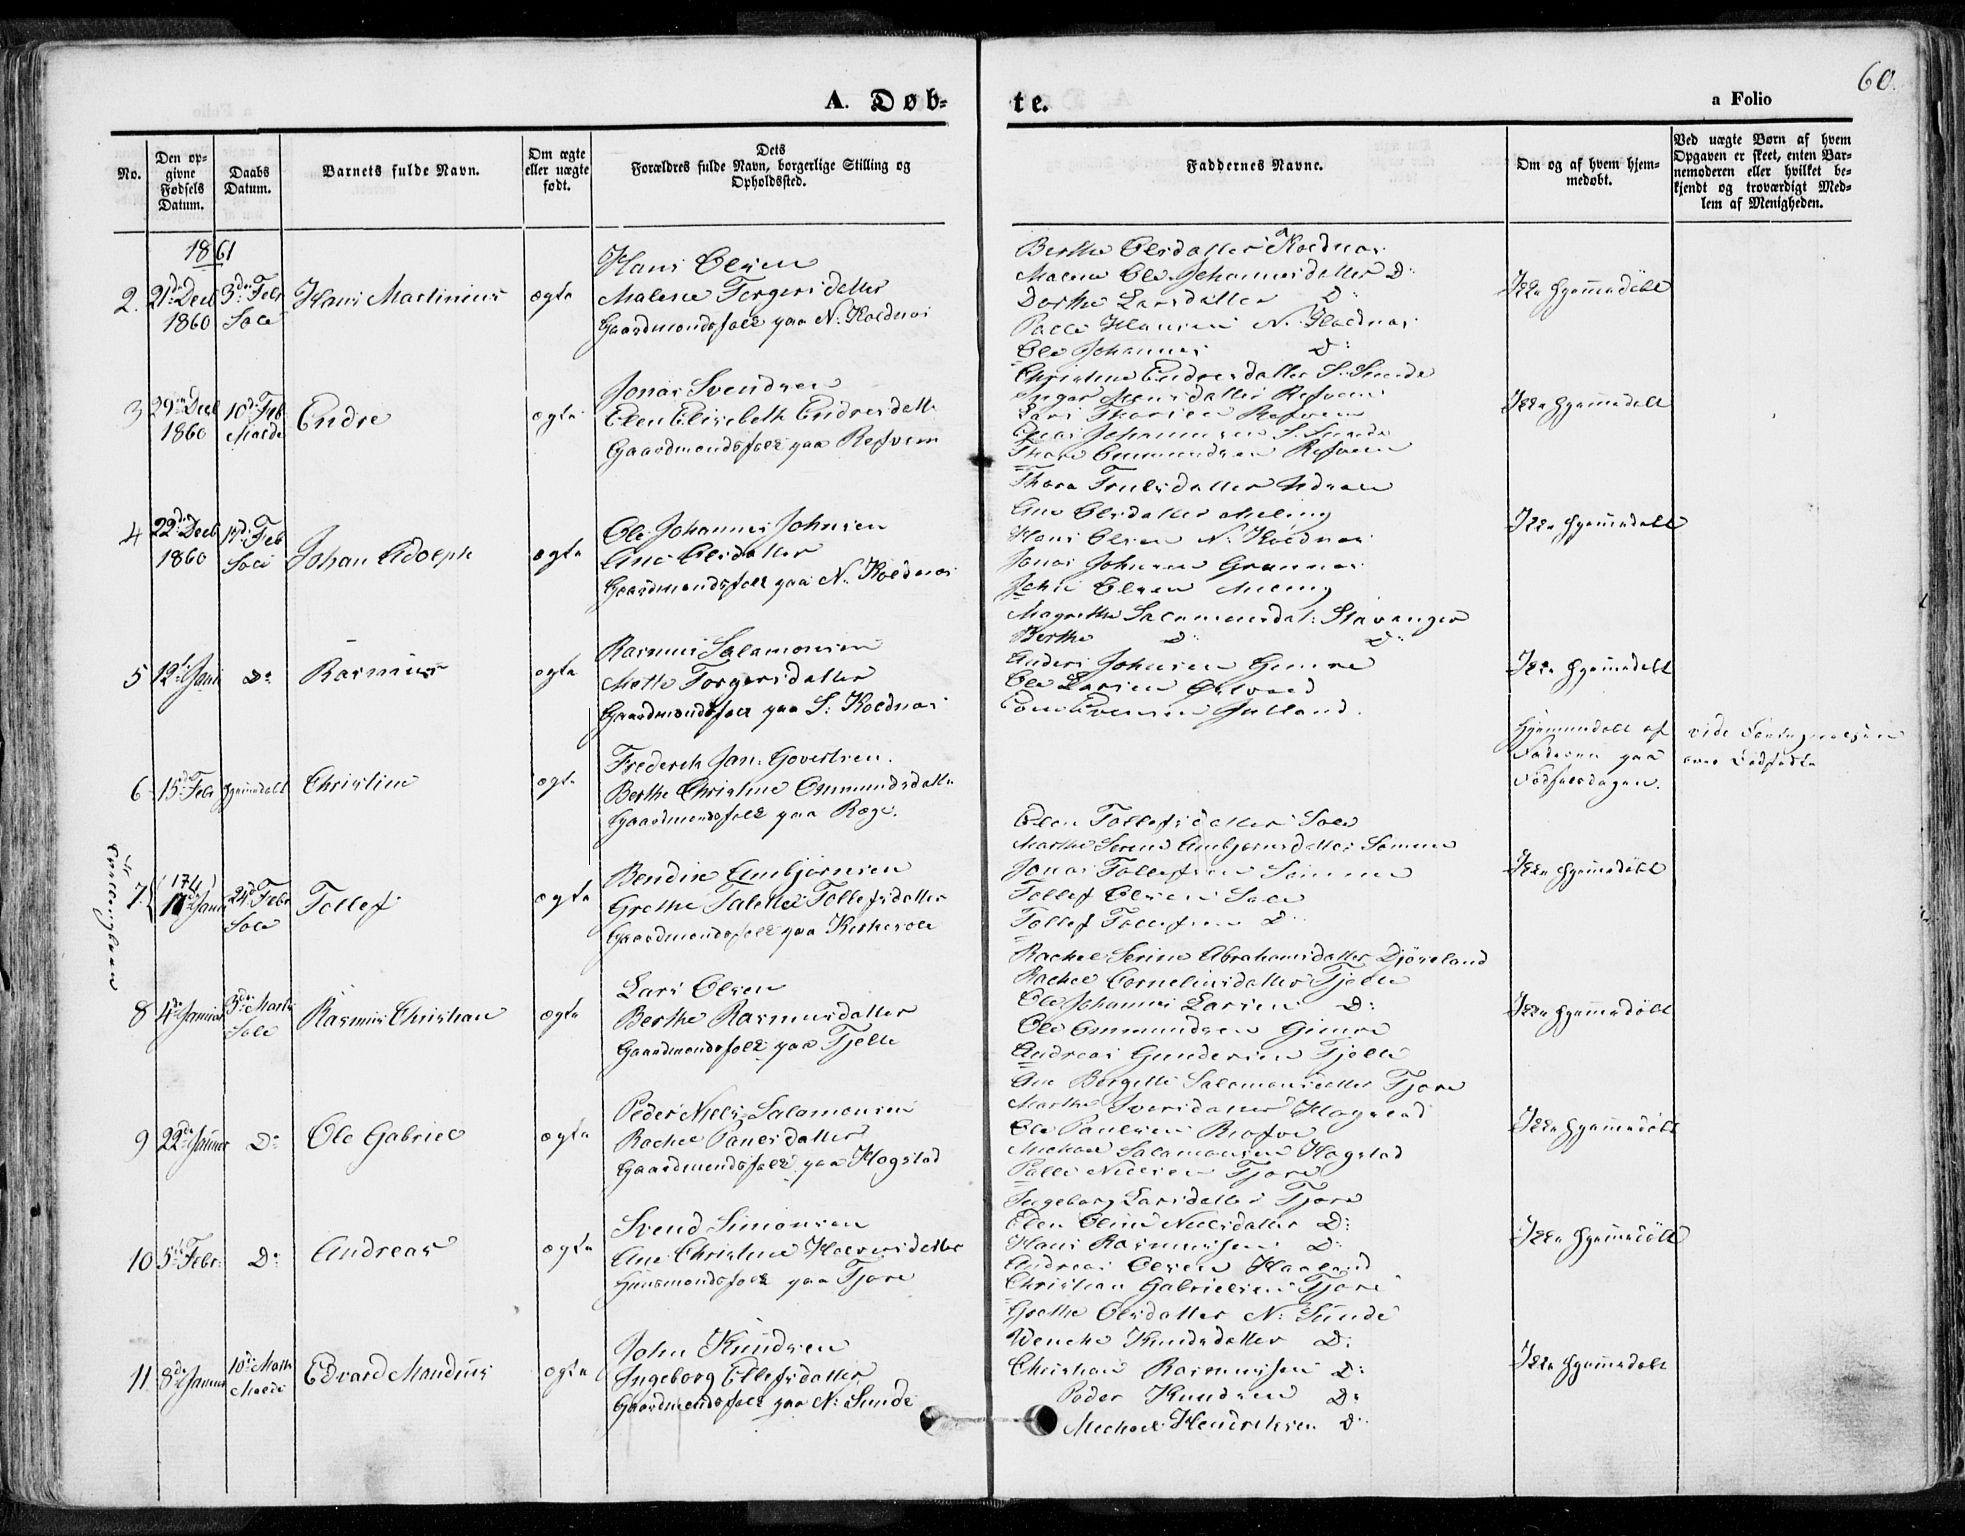 60.
A. Døb-
te.
a Folio
No.
Den op-
givne
Fødsels
Datum.
Daabs
Datum.
Barnets fulde Navn.
Om ægte
eller uægte
født.
Dets
Forældres fulde Navn, borgerlige Stilling og
Opholdssted.
Faddernes Navne.
Om og af hvem hjem-
medøbt.
Ved uægte Børn af hvem
Opgaven er skeet, enten Bar-
nemoderen eller hvilket be-
kjendt og troværdigt Med-
lem af Menigheden.
1861
2. 21de Decb 1860
3die Febr Sole
Hans Martinius
ægte
Hans Olsen
Malene Torgersdatter
Gaardmandsfolk paa N. Koldnæs
Berthe Olsdatter Koldnæs
Malene Ole Johannesdatter Do
Dorthe Larsdatter Do
Palle Hansen N. Koldnæs
Ole Johannes Do
Ikke hjemmedøbt
3 29de Decb 1860
10de Feb Malde
Endre
ægte
Jonas Svendsen
Elen Elisebeth Endresdatt
Gaardmandsfolk paa Refvem
Christine Endresdatter S. Sunde
Lars Thorsen Refvem
Johannesen S. Sunde
Thore Ommundsen Refvem
Ikke hjemmedøbt
4 22de Decb 1860
17de Feb Sole
Johan Adolph
ægte
Ole Johannes Johnsen
Ane Olsdatter
Gaardmandsfolk paa N. Koldnæs
Thora Truelsdatter
Ane Olsdatter Meling
Hans Olsen N. Koldnæs
Jonas Johnsen Grannes
John Olsen Meling
Ikke hjemmedøbt
5 12te Janr
Do
Rasmus
ægte
Rasmus Salamonsen
Mette Torgersdatter
Gaardmandsfolk paa S. Koldnæs
Magrethe Salamonsdat: Stavanger
Berthe Do Do
Anders Johnsen Gimre
Ole Larsen
Jaasund.
Ikke hjemmedøbt
6 15de Febr
hjemmedøbt
Christine
ægte
Frederik Jan: Govertsen.
Berthe Christine Ommundsdatter
Gaardmandsfolk paa Ræge.
Hjemmedøbt af
Faderen paa
Fødselsdagen.
vide
over Dødfødte
Tvillingbørn
7 (17de) Janr
24de Febr Sole
Tollef
ægte
Bendix Ambjørnsen
Grethe Talette Tollefsdatter
Gaardmandsfolk paa Kirkesole
Elen Tollefsdatter Sole
Marthe Serine Ambjørnsdatter Sømme
Jonas Tollefsen Sømme
Tollef Olsen Sole
Tollef Tollefsen Do
Ikke hjemmedøbt
8 4de Januar
3die Marts Sole
Rasmus Christian
ægte
Lars Olsen
Berthe Rasmusdatter
Gaardmandsfolk paa Tjelte
Rachel Serine Abrahamsdatter
Rachel Cornelinsdatter Tjelte
Ole Johannes Larsen Do:
Ole Ommundsen Gimre
Andreas Gundersen Tjelte
Ikke hjemmedøbt
9 22de Januar
Do:
Ole Gabriel
ægte
Peder Niels Salamonsen
Rachel Paulsdatter
Gaardmandsfolk paa Hogstad
Ane Bergitte Salamonsdatter Tjora
Marthe Iversdatter Hogstad
Ole Paulsen
Michael Salamonsen Hogstad
Palle Nielsen Tjora
Ikke hjemmedøbt
10 5te Febr:
Do:
Andreas
ægte
Svend Simonsen
Ane Christine Halversdatter
Huusmandsfolk paa Tjora
Ingeborg Larsdatter Tjora
Elen Oline Nielsdatter Do:
Hans Rasmussen Do:
Andreas Olsen Haaland
Christian Gabrielsen Tjora
Ikke hjemmedøbt
11 8de Januar
10de Marts Malde
Edvard Mandius
ægte
John Knudsen
Ingeborg Ellefsdatter
Gaardmandsfolk paa N. Sunde
Grethe Olsdatter N. Sunde
Wenche Knudsdatter Do:
Christian Rasmussen Do:
Peder Knudsen Do:
Michael Hendriksen Do:
Ikke hjemmedøbt